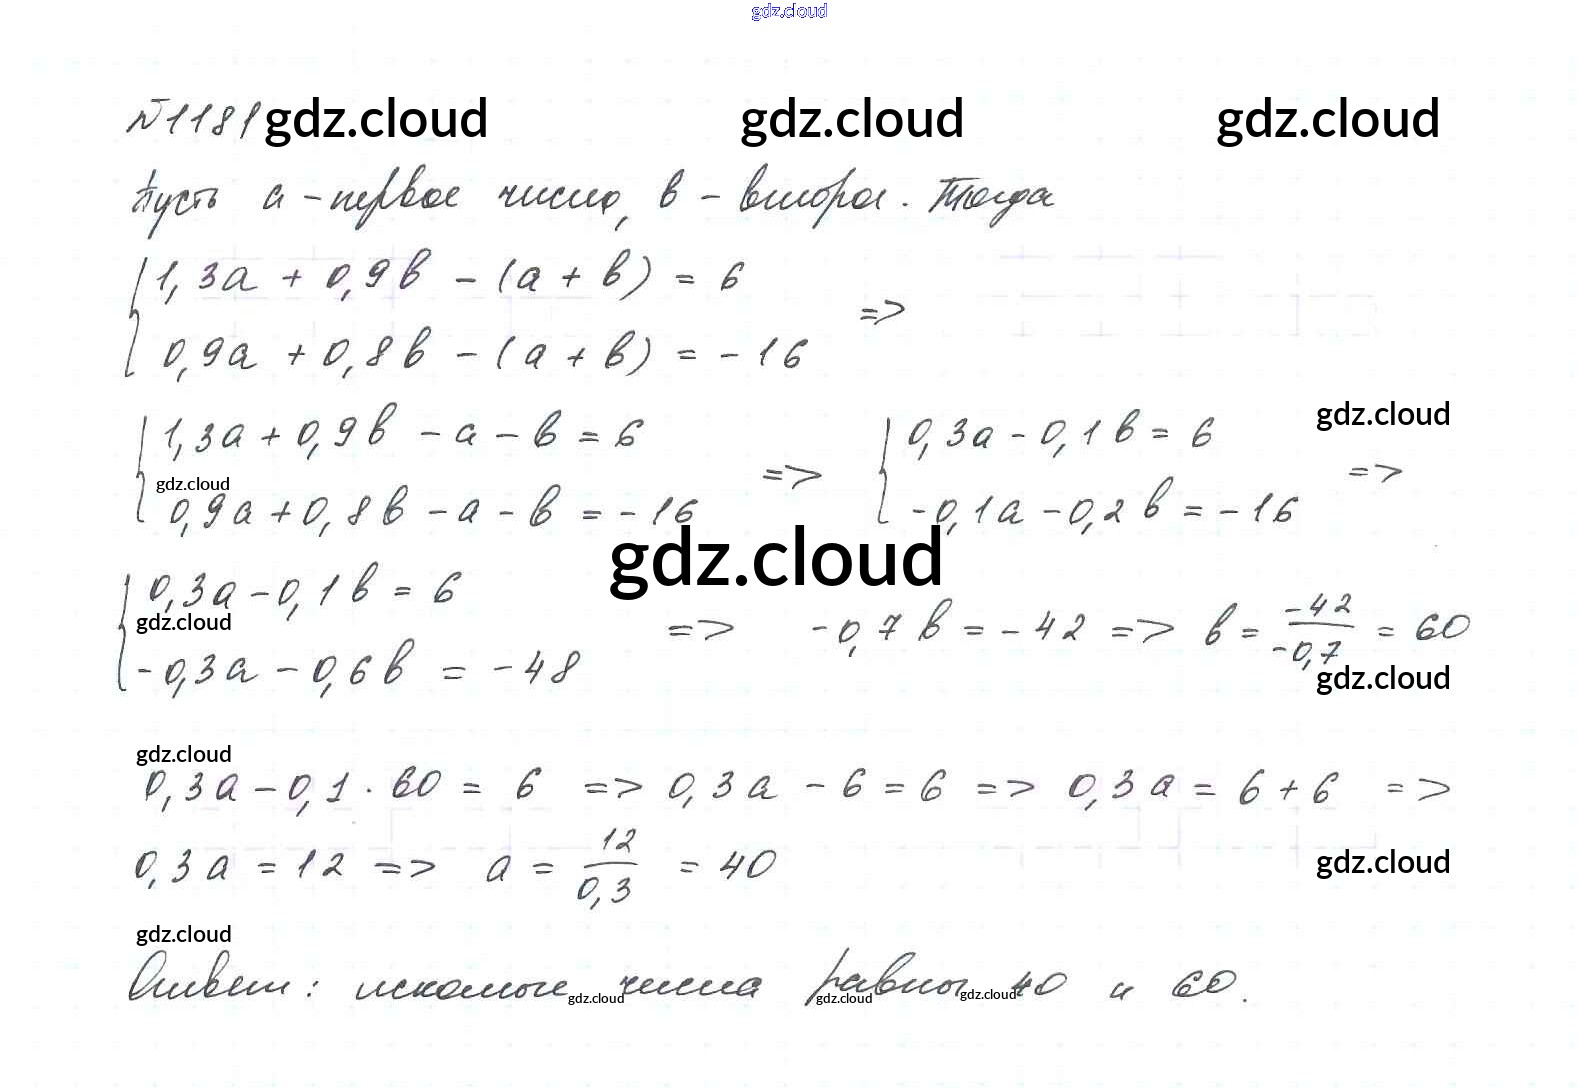 gdz.cloud
№1181 gdz.cloud gdz.cloud gdz.cloud
Пусть а - первое число, в - второе. Тогда
{ 1,3а + 0,9в - (а + в) = 6
{ 0,9а + 0,8в - (а + в) = -16 =>
{ 1,3а + 0,9в - а - в = 6
{ 0,9а + 0,8в - а - в = -16 => { 0,3а - 0,1в = 6
{ -0,1а - 0,2в = -16 =>
gdz.cloud
gdz.cloud
gdz.cloud
{ 0,3а - 0,1в = 6
{ -0,3а - 0,6в = -48 => -0,7в = -42 => в = -42/-0,7 = 60
gdz.cloud
gdz.cloud
gdz.cloud
0,3а - 0,1 · 60 = 6 => 0,3а - 6 = 6 => 0,3а = 6 + 6 =>
0,3а = 12 => а = 12/0,3 = 40
gdz.cloud
gdz.cloud
Ответ: искомые числа равны 40 и 60.
gdz.cloud gdz.cloud gdz.cloud